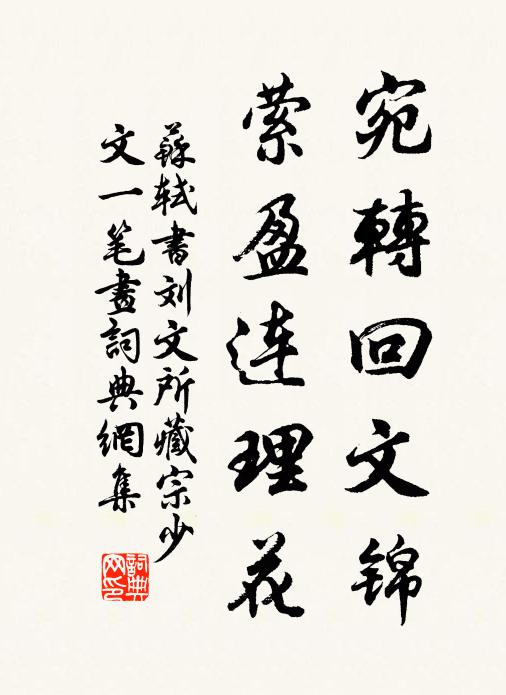 宛轉回文錦
萦盈連理花
蘇軾書刘文所藏宗少
文一笔畫詞典網集
詞典
网印